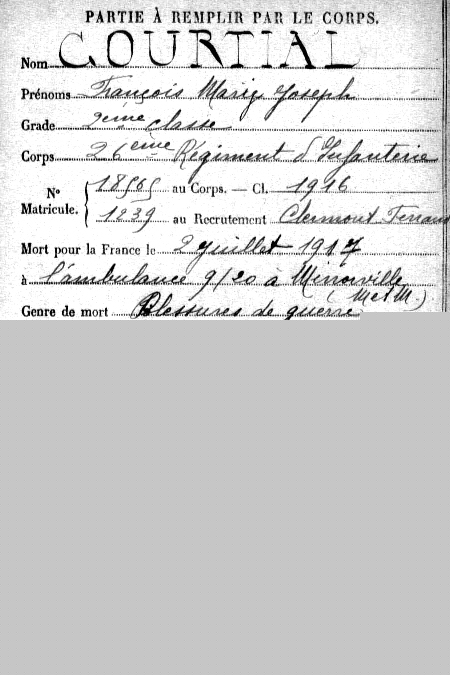 PARTIE À REMPLIR PAR LE CORPS.
Nom GOURTIAL
Prénoms François Marie Joseph
Grade 2ème classe
Corps 26eme Régiment d'Infanterie
N° Matricule. { 18565 au Corps. — Cl. 1916
1239 au Recrutement Clermont-Ferrand
Mort pour la France le 2 juillet 1917
à l'ambulance 9/20 à Minorville
(M et M.)
Genre de mort Blessures de guerre